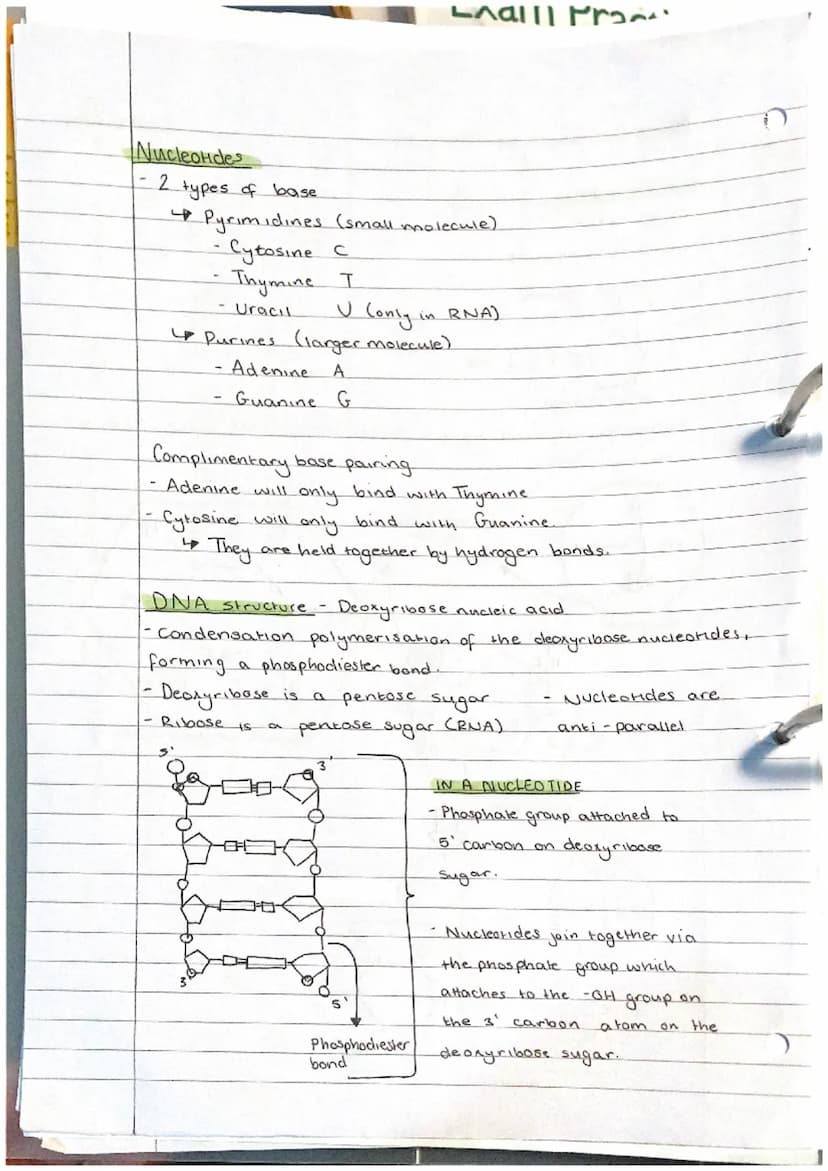 Exam Pract
Nucleotides
- 2 types of base
↳ Pyrimidines (small molecule)
- Cytosine C
- Thymine T
- Uracil U (only in RNA)
↳ Purines (larger molecule)
- Adenine A
- Guanine G
Complimentary base pairing
- Adenine will only bind with Thymine
- Cytosine will only bind with Guanine.
↳ They are held together by hydrogen bonds.
DNA structure - Deoxyribose nucleic acid
- Condensation polymerisation of the deoxyribose nucleotides,
forming a phosphodiester bond.
- Deoxyribose is a pentose sugar
- Ribose is a pentose sugar (RNA)
- Nucleotides are
anti-parallel
5'
3'
3'
5'
Phosphodiester
bond
IN A NUCLEOTIDE
- Phosphate group attached to
5' carbon on deoxyribose
sugar.
- Nucleotides join together via
the phosphate group which
attaches to the -OH group on
the 3' carbon atom on the
deoxyribose sugar.